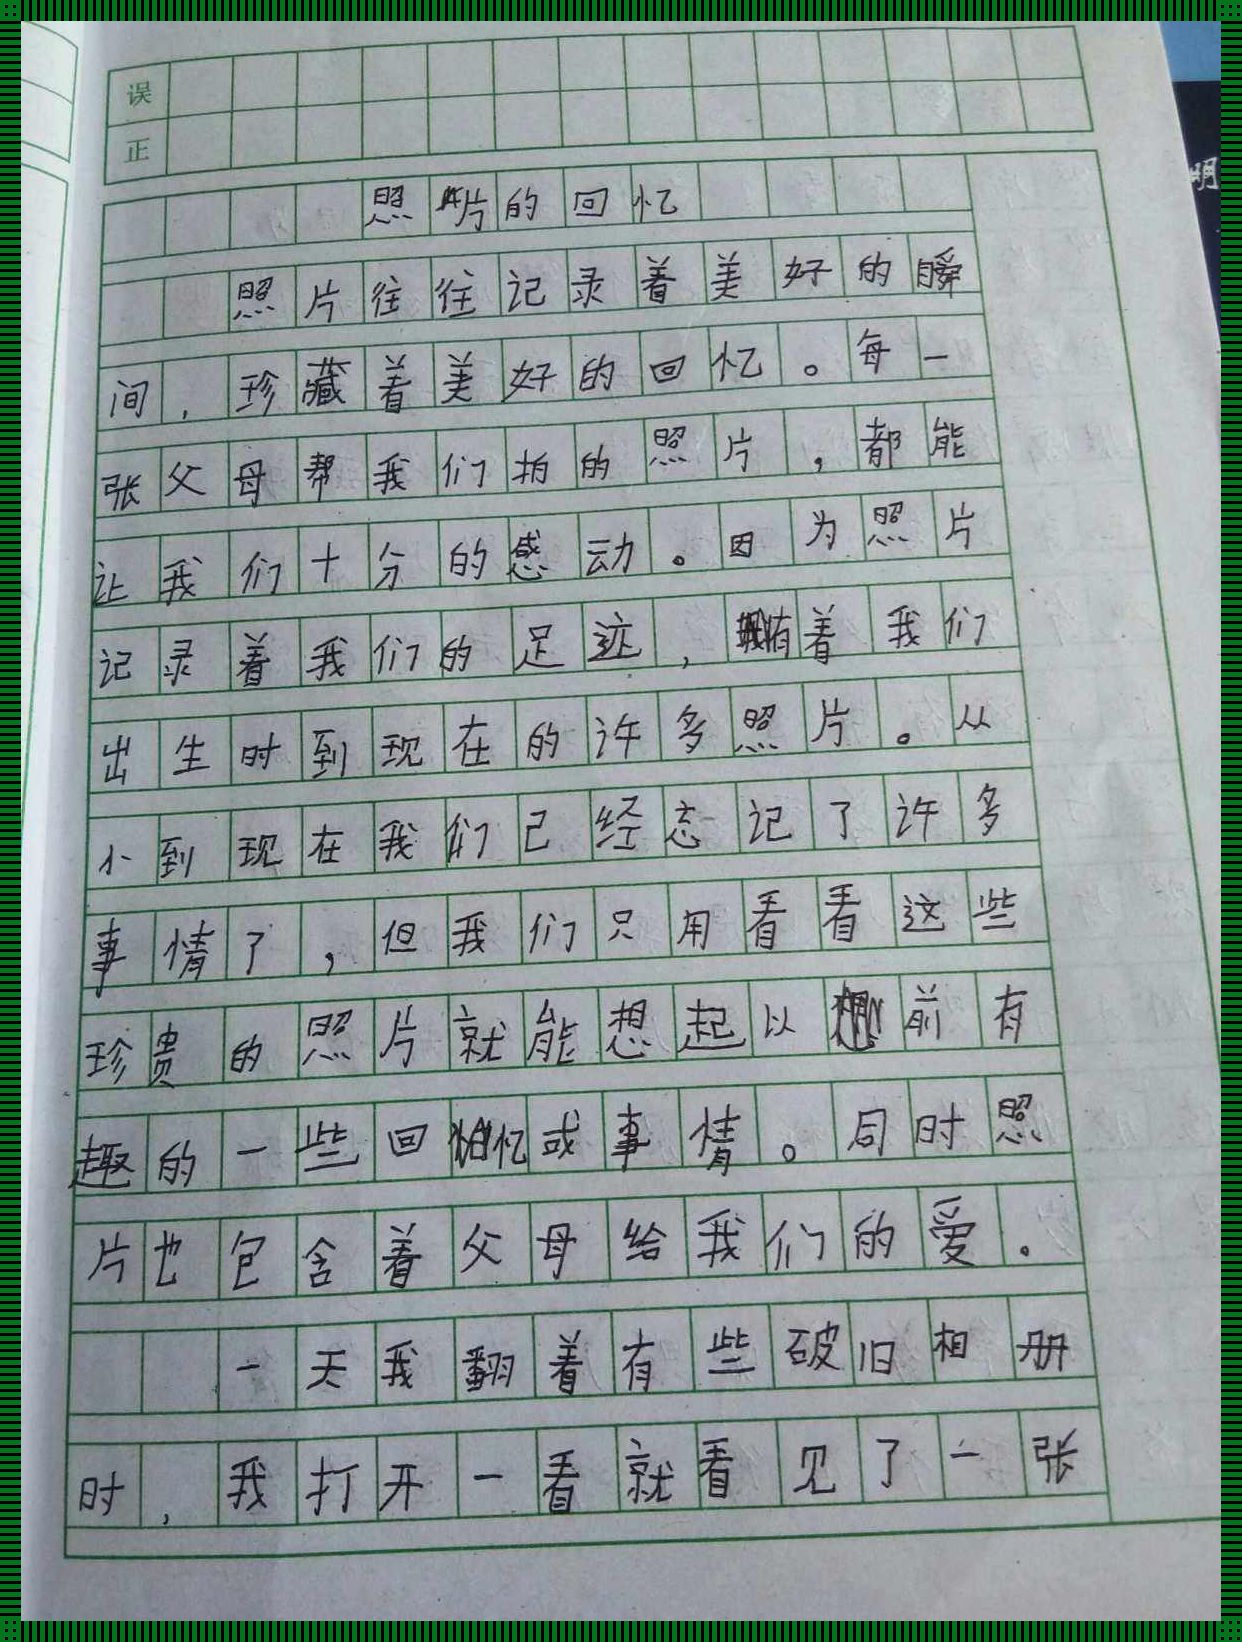 误
正
照片的回忆
照片往往记录着美好的瞬
间，珍藏着美好的回忆。每一
张父母帮我们拍的照片，都能
让我们十分的感动。因为照片
记录着我们的足迹，拥有着我们
出生时到现在的许多照片。从
小到现在我们已经忘记了许多
事情了，但我们只用看看这些
珍贵的照片就能想起以前有
趣的一些回忆或事情。同时照
片也包含着父母给我们的爱。
一天我翻着有些破旧相册
时，我打开一看就看见了一张
明